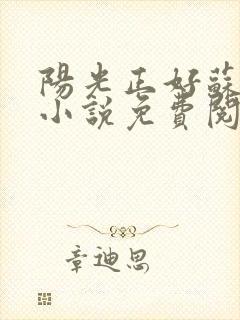 陽光正好蘇
小說免費閱
章迪思